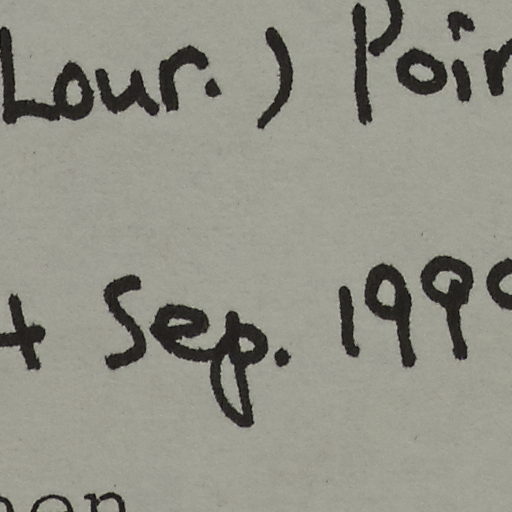 Lour.) Poir
4 Sep. 199